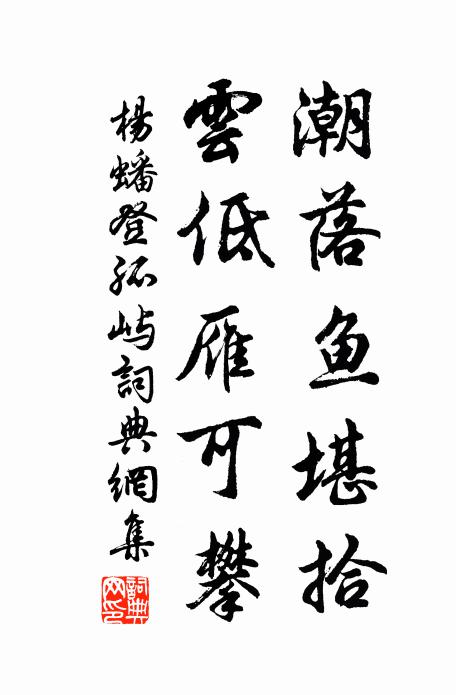 潮落魚堪拾
雲低雁可攀
楊蟠登孤屿詞典網集
詞典網印